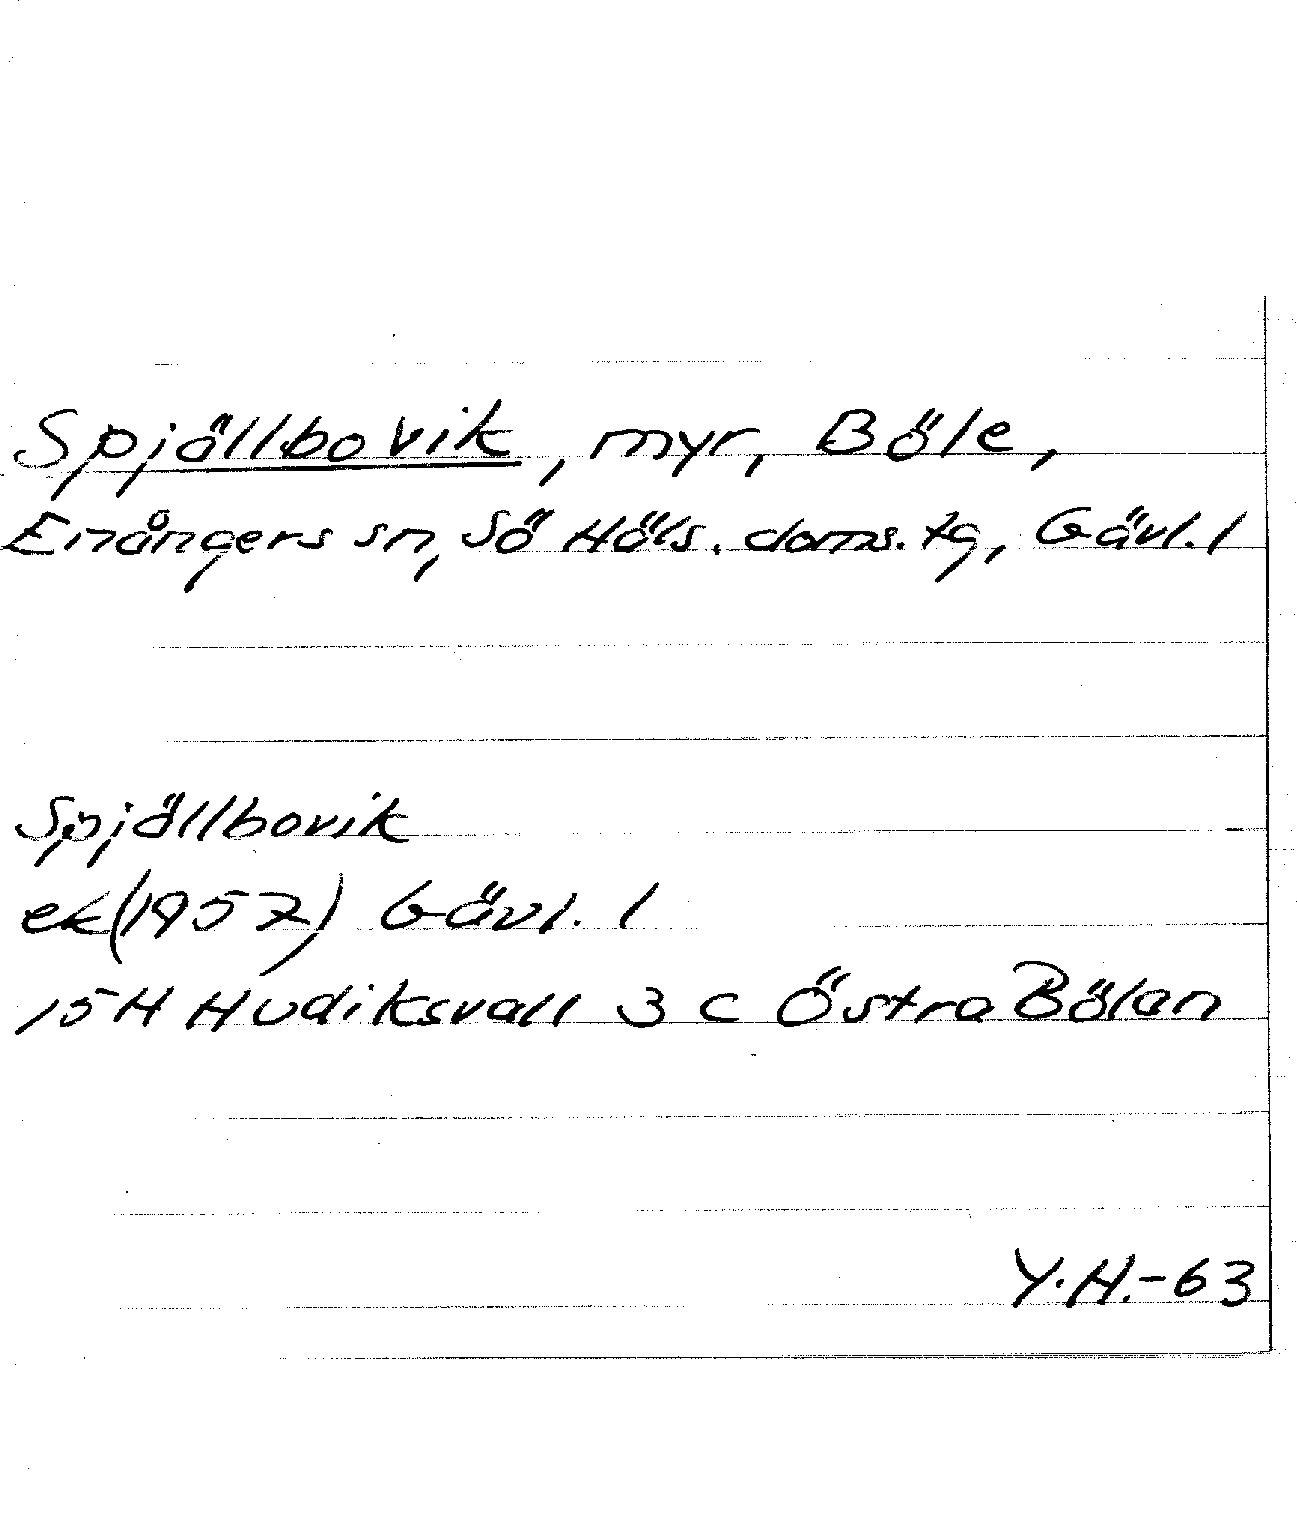 Spjällbovik, myr, Böle,
Enångers sn, Sö Häls. doms. tg, Gävl. l
Spjällbovik
ek(1957) Gävl. l
15H Hudiksvall 3 c Östra Bölan
Y.H.-63